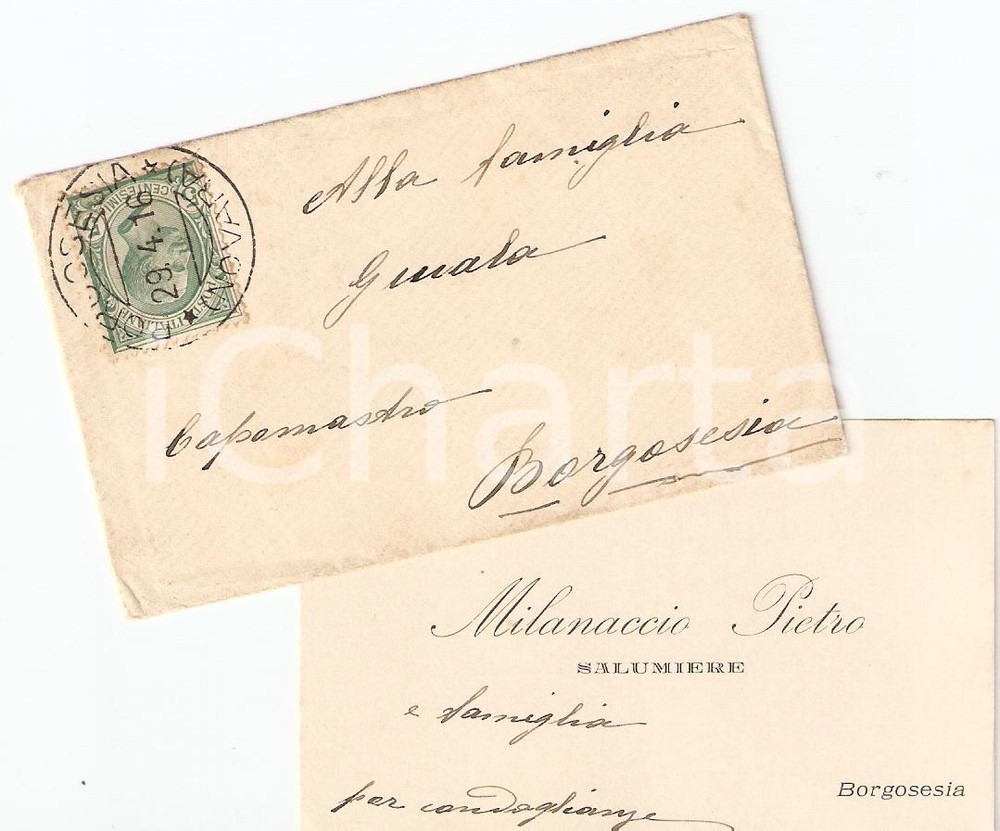 BORGOSESIA * (NOVARA) *
29.4.16
CENTESIMI
Alla famiglia
Guala
Capomastro
Borgosesia
iCharta
Milanaccio Pietro
SALUMIERE
e famiglia
Borgosesia
per condoglianze